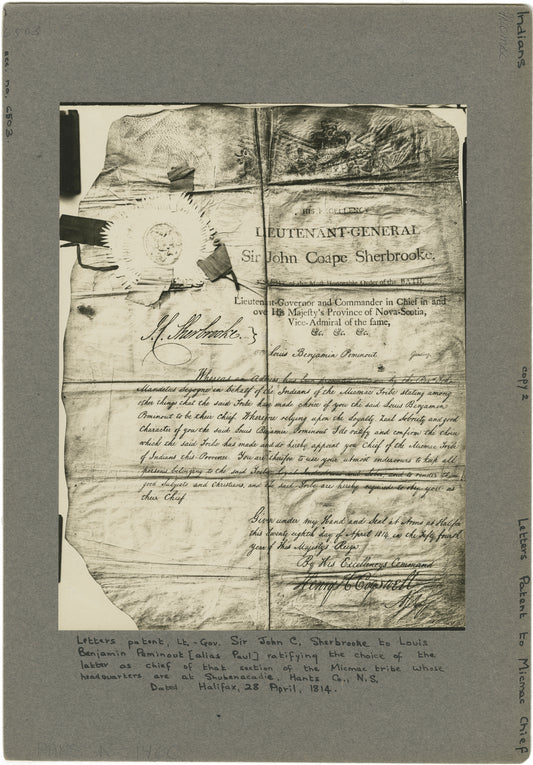 Indians
Micmac
503
acc. no. 6503
HIS EXCELLENCY
LIEUTENANT-GENERAL
Sir John Coape Sherbrooke,
of the Most Honorable Order of the BATH,
Lieutenant-Governor and Commander in Chief in and
over His Majesty's Province of Nova-Scotia,
Vice-Admiral of the same,
&c. &c. &c.
J. C. Sherbrooke }
Louis Benjamin Pominout, Greeting,
Whereas an Address has been to me by the
in behalf of the Indians of the Micmac Tribe stating among
other things that the said Tribe has made choice of you the said Louis Benjamin
Pominout to be their Chief. Wherefore relying upon the Loyalty Zeal Sobriety and good
Character of you the said Louis Benjamin Pominout I do ratify and confirm the Choice
which the said Tribe has made and do hereby appoint you Chief of the Micmac Tribe
of Indians this Province You are therefore to use your utmost endeavours to keep all
persons belonging to the said Tribe Loyal and to render them
good Subjects and Christians, and the said Tribe are hereby required to obey you as
their Chief
Given under my Hand and Seal at Arms at Halifax
this Twenty eighth day of April 1814 in the Fifty fourth
Year of His Majesty's Reign
By His Excellencys Command
Henry H Cogswell
Letters patent, Lt.-Gov. Sir John C. Sherbrooke to Louis
Benjamin Peminout [alias Paul] ratifying the choice of the
latter as chief of that section of the Micmac tribe whose
headquarters are at Shubenacadie, Hants Co., N.S.
Dated Halifax, 28 April, 1814.
copy 2
Letters Patent to Micmac Chief